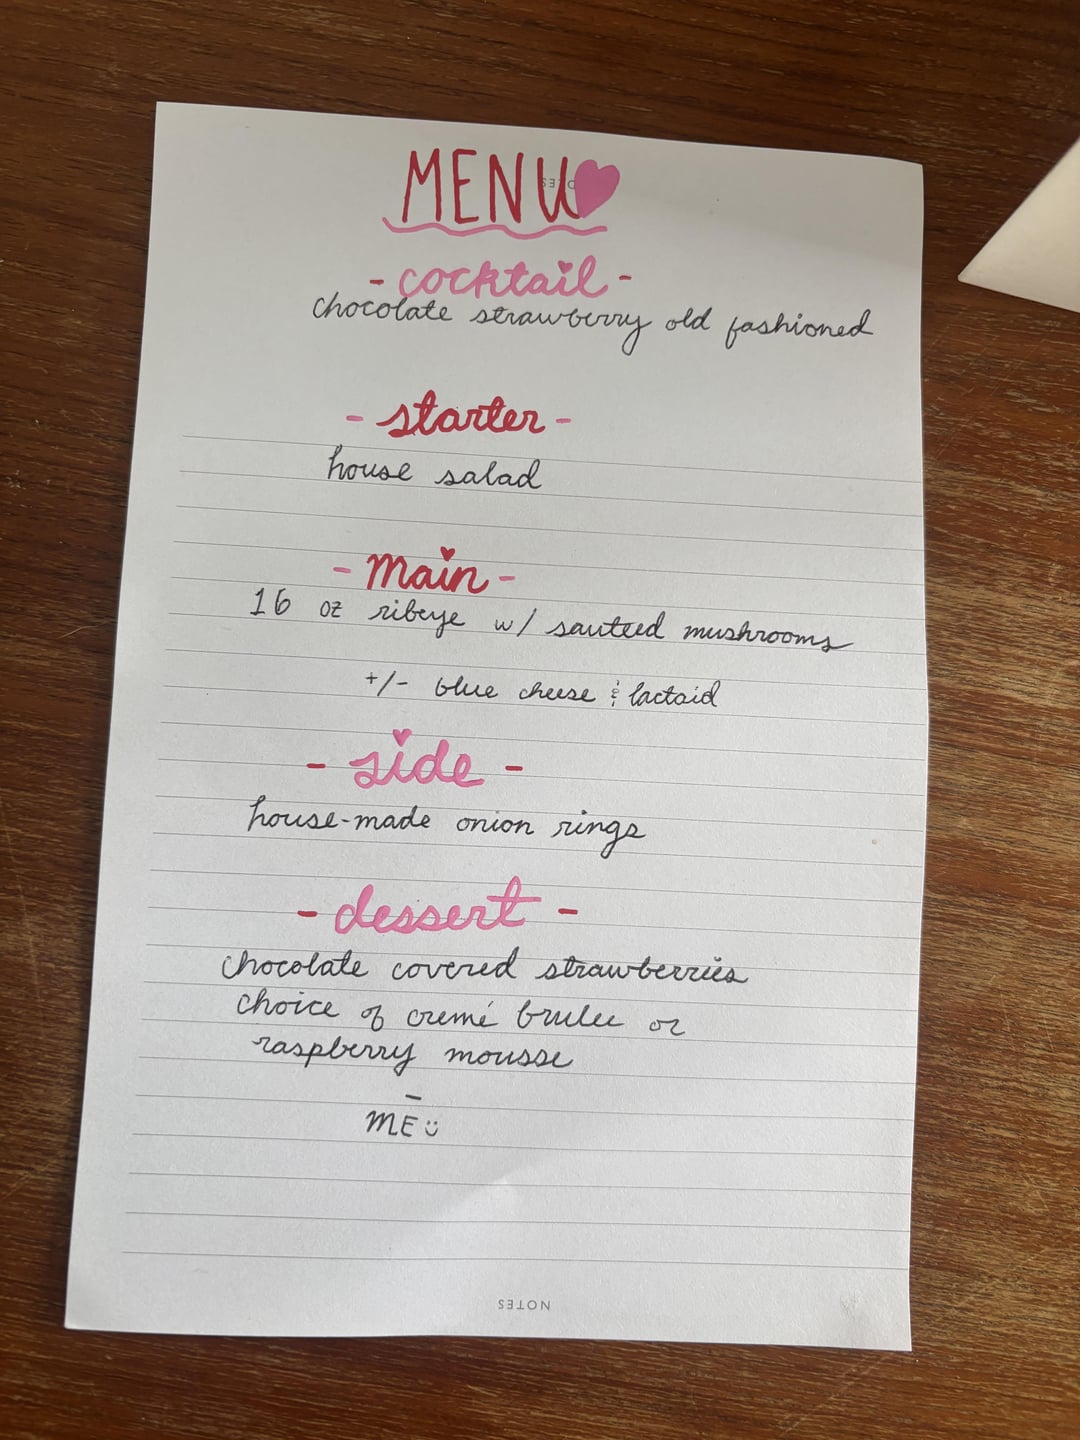 MENU
-cocktail-
chocolate strawberry old fashioned
-starter-
house salad
-main-
16 oz ribeye w/ sauteed mushrooms
+/- blue cheese & lactaid
-side-
house-made onion rings
-dessert-
chocolate covered strawberries
choice of cremé brulee or
raspberry mousse
—
ME :)
NOTES